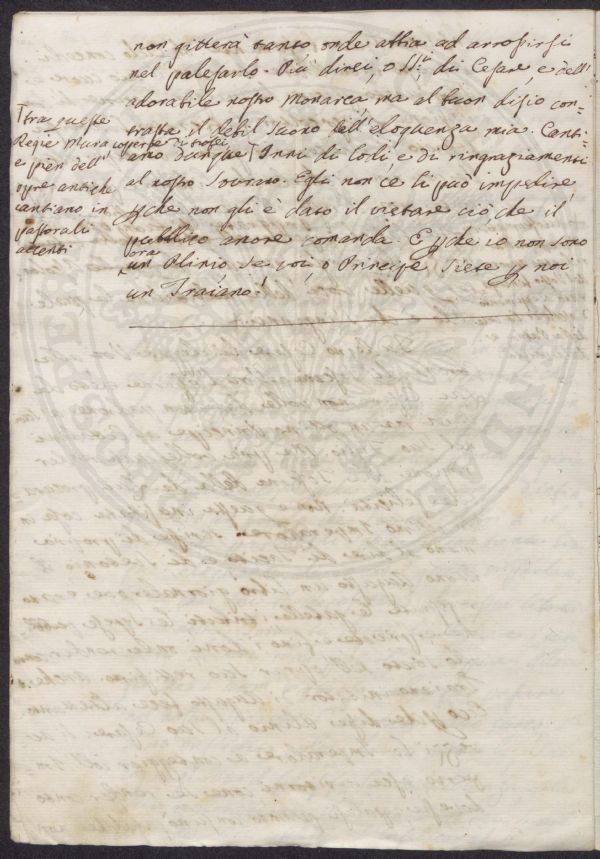 non gitterà tanto onde abbia ad arrossirsi
nel palesarlo. Più direi, o SS.ri di Cesare, e dell'
adorabile nostro Monarca ma al buon disio con=
trasta il debil suono dell'eloquenza mia. Canti=
amo dunque Inni di lodi e di ringraziamenti
al nostro Sovrano. Egli non ce li può impedire
che non gli è dato il vietare ciò, che il
pubblico amore comanda. E che io non sono
ora
un Plinio, se voi, o Principe siete noi
un Traiano!
tra queste
Regie Mura coperte di trofei
e pien dell'
opre antiche
cantiano in
pastorali
accenti